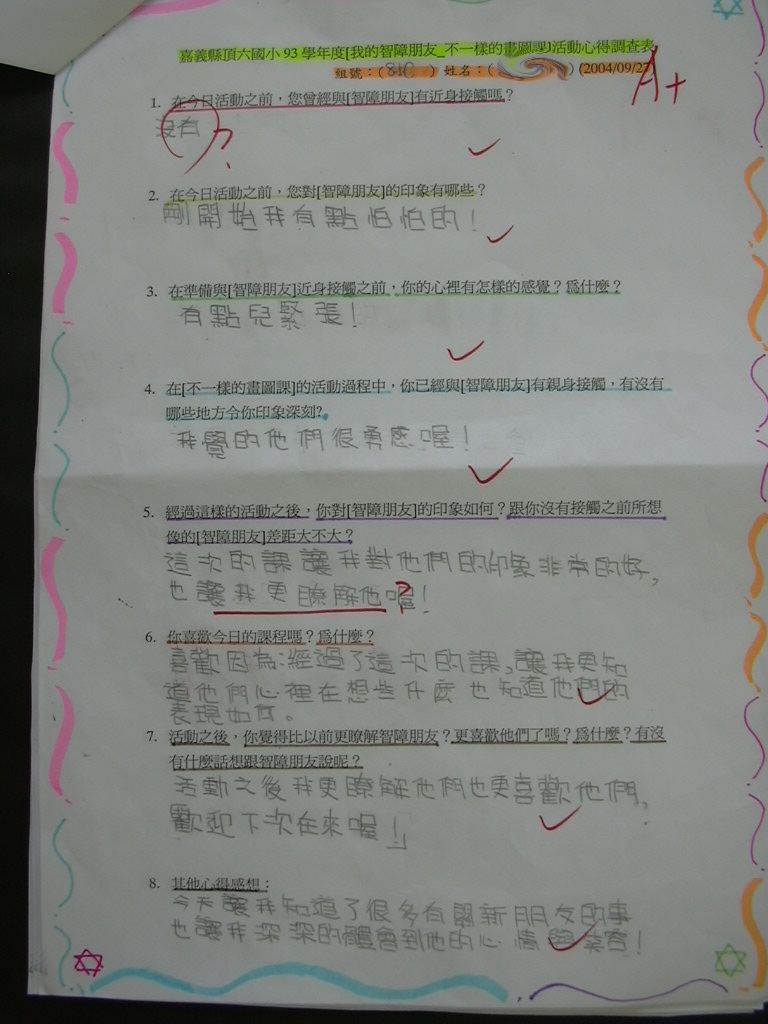 嘉義縣頂六國小93學年度[我的智障朋友_不一樣的畫圖課]活動心得調查表
組號:( ) 姓名:( ) (2004/09/27)
A+
1. 在今日活動之前,您曾經與[智障朋友]有近身接觸嗎?
沒有 ?
2. 在今日活動之前,您對[智障朋友]的印象有哪些?
剛開始我有點怕怕的!
3. 在準備與[智障朋友]近身接觸之前,你的心裡有怎樣的感覺?爲什麼?
有點兒緊張!
4. 在[不一樣的畫圖課]的活動過程中,你已經與[智障朋友]有親身接觸,有沒有
哪些地方令你印象深刻?
我覺的他們很勇感喔!
5. 經過這樣的活動之後,你對[智障朋友]的印象如何?跟你沒有接觸之前所想
像的[智障朋友]差距大不大?
這次的課讓我對他們的印象非常的好,
也讓我更瞭解他喔!
6. 你喜歡今日的課程嗎?爲什麼?
喜歡因為:經過了這次的課,讓我更知
道他們心裡在想些什麼也知道他們的
表現如何。
7. 活動之後,你覺得比以前更瞭解智障朋友?更喜歡他們了嗎?爲什麼?有沒
有什麼話想跟智障朋友說呢?
活動之後我更瞭解他們也更喜歡他們,
歡迎下次在來喔!」
8. 其他心得感想:
今天讓我知道了很多有關新朋友的事
也讓我深深的體會到他的心情與笑容!